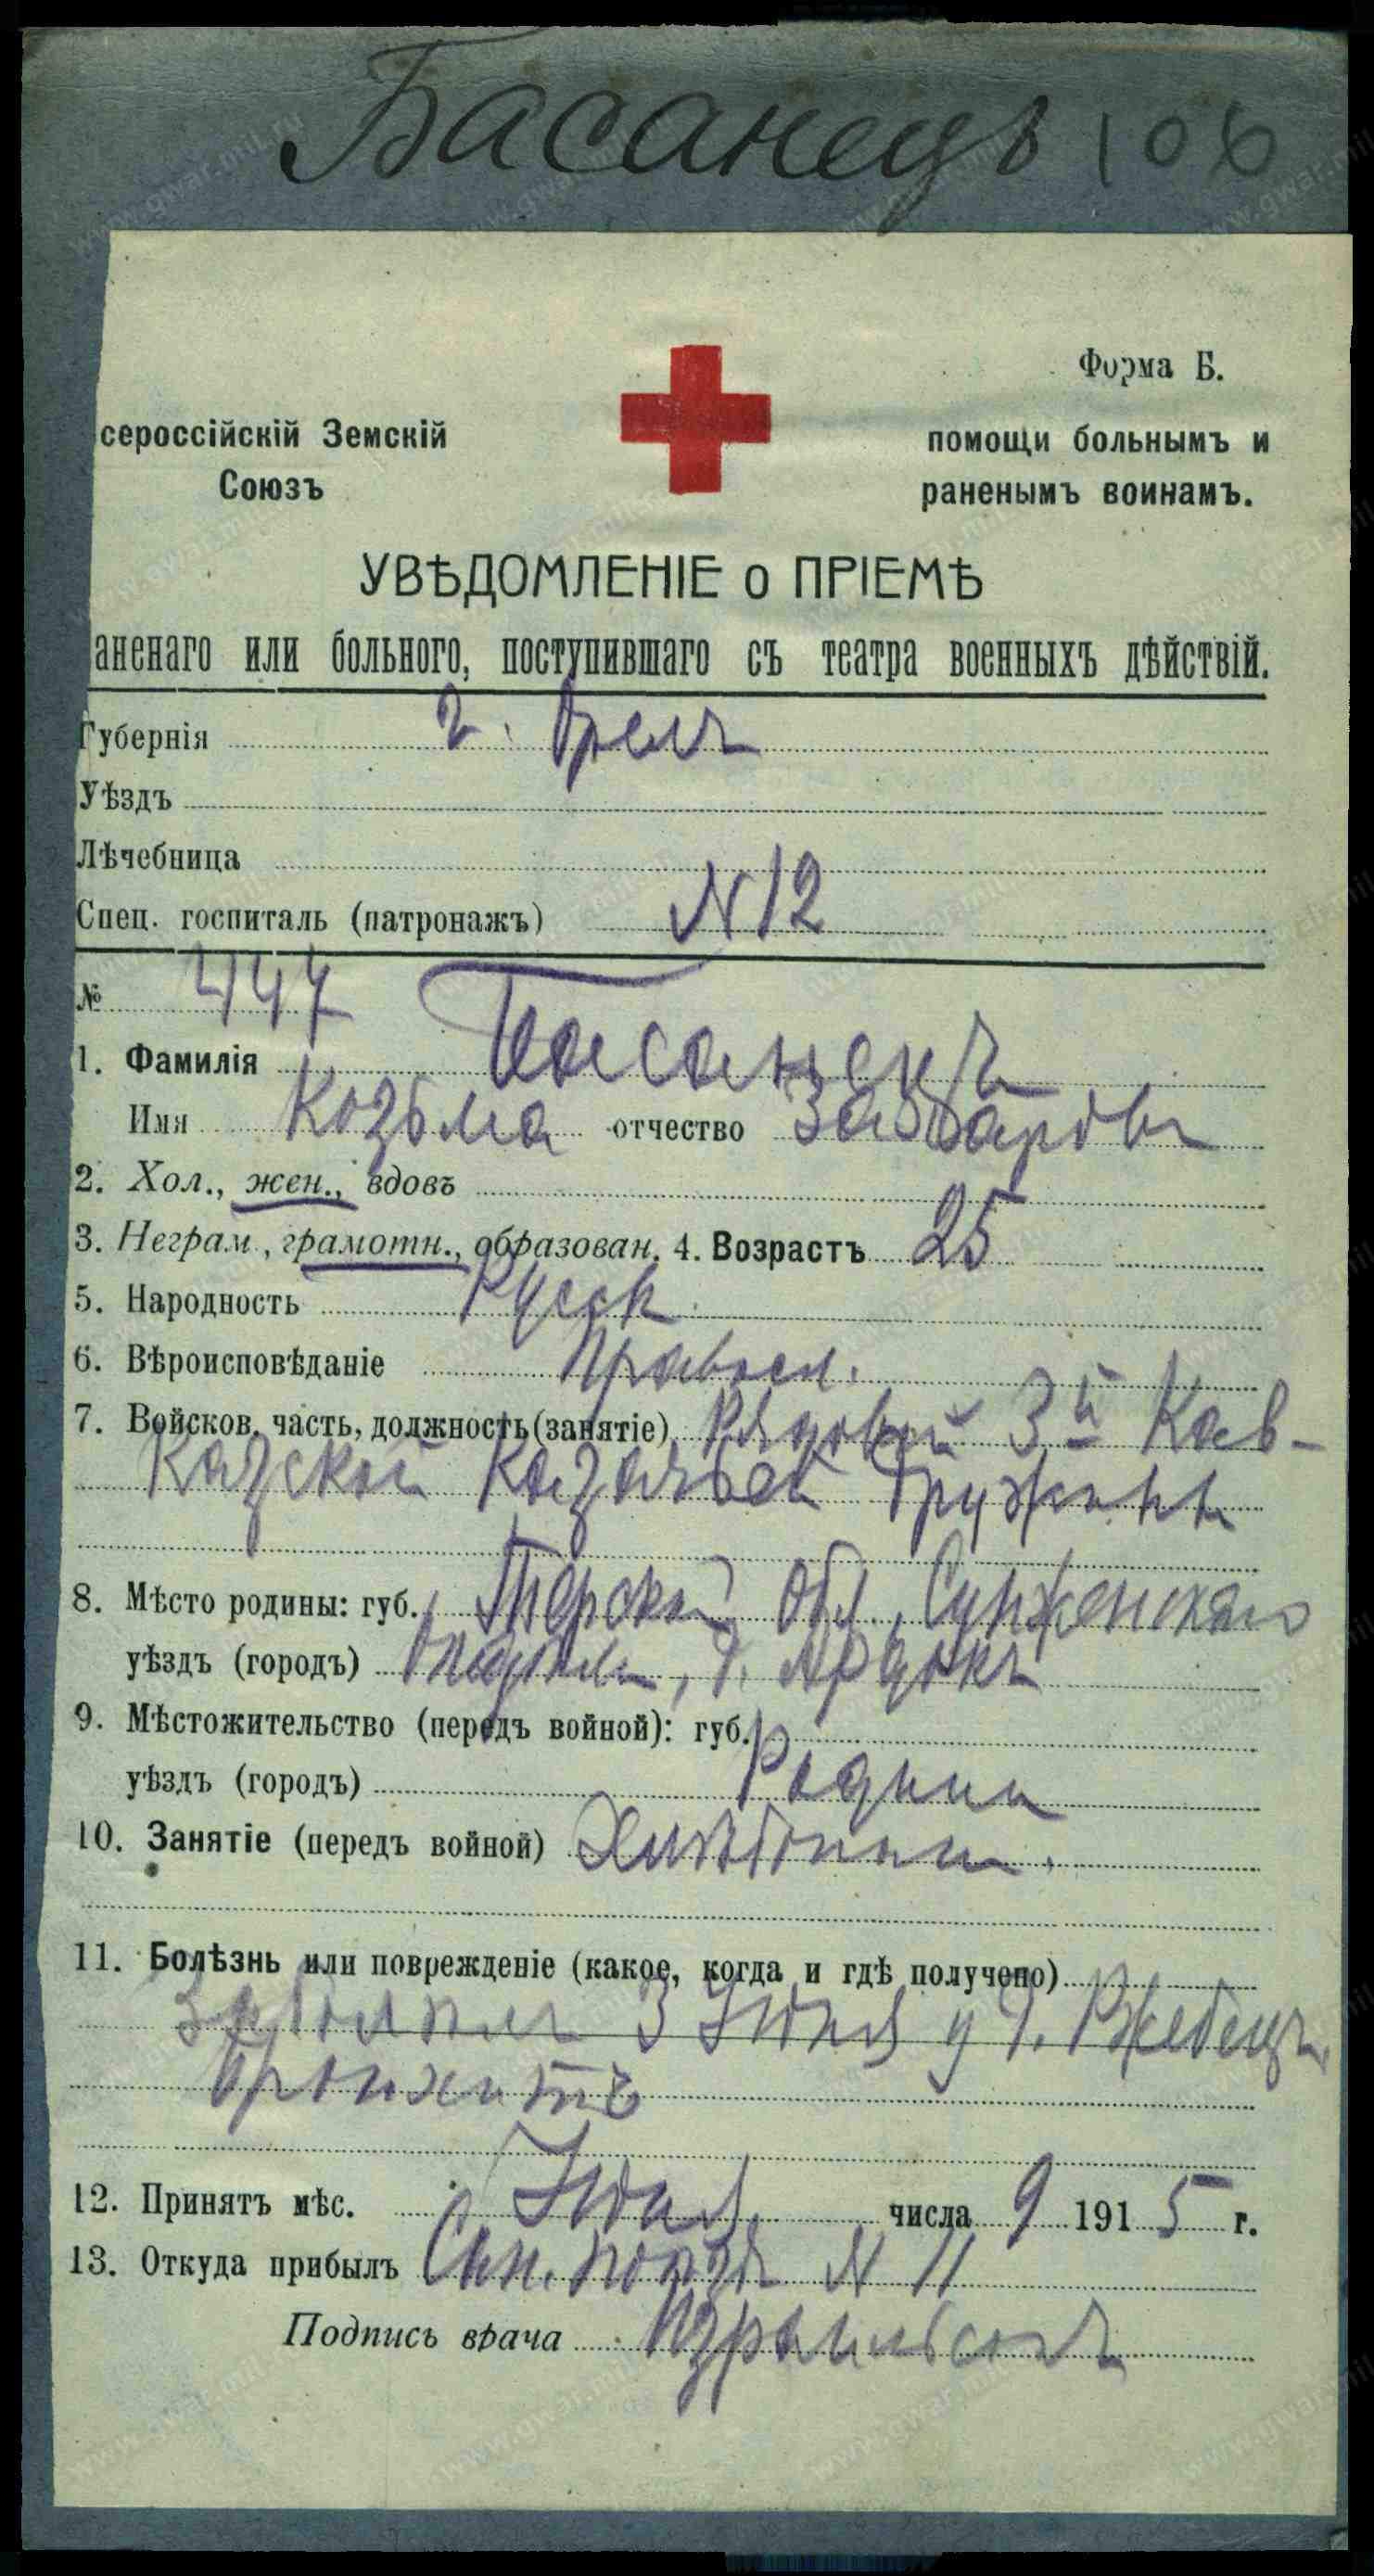 Басанецъ 106
Форма Б.
сероссійскій Земскій
Союзъ
помощи больнымъ и
раненымъ воинамъ.
УВѢДОМЛЕНІЕ о ПРІЕМѢ
аненаго или больного, поступившаго съ театра военныхъ дѣйствій.
Губернія г. Орелъ
Уѣздъ
Лѣчебница
Спец. госпиталь (патронажъ) N 12
№ 447
1. Фамилія Басанецъ
Имя Козьма отчество
2. Хол., жен., вдовъ
3. Неграм., грамотн., образован. 4. Возрастъ 25
5. Народность Русск.
6. Вѣроисповѣданіе Правосл.
7. Войсков. часть, должность (занятіе) Рядовой 3й Кав-
казской Казачьей Дружины
8. Мѣсто родины: губ. Терской обл. Сунженскаго
уѣздъ (городъ) Отдѣла,
9. Мѣстожительство (передъ войной): губ.
уѣздъ (городъ) Родина
10. Занятіе (передъ войной) Хлѣбопаш.
11. Болѣзнь или поврежденіе (какое, когда и гдѣ получено)
Заболѣлъ 3 Іюля у д.
Бронхитъ
12. Принятъ мѣс. Іюля числа 9 1915 г.
13. Откуда прибылъ Сан. поѣздъ N 11
Подпись врача
www.gwar.mil.ru